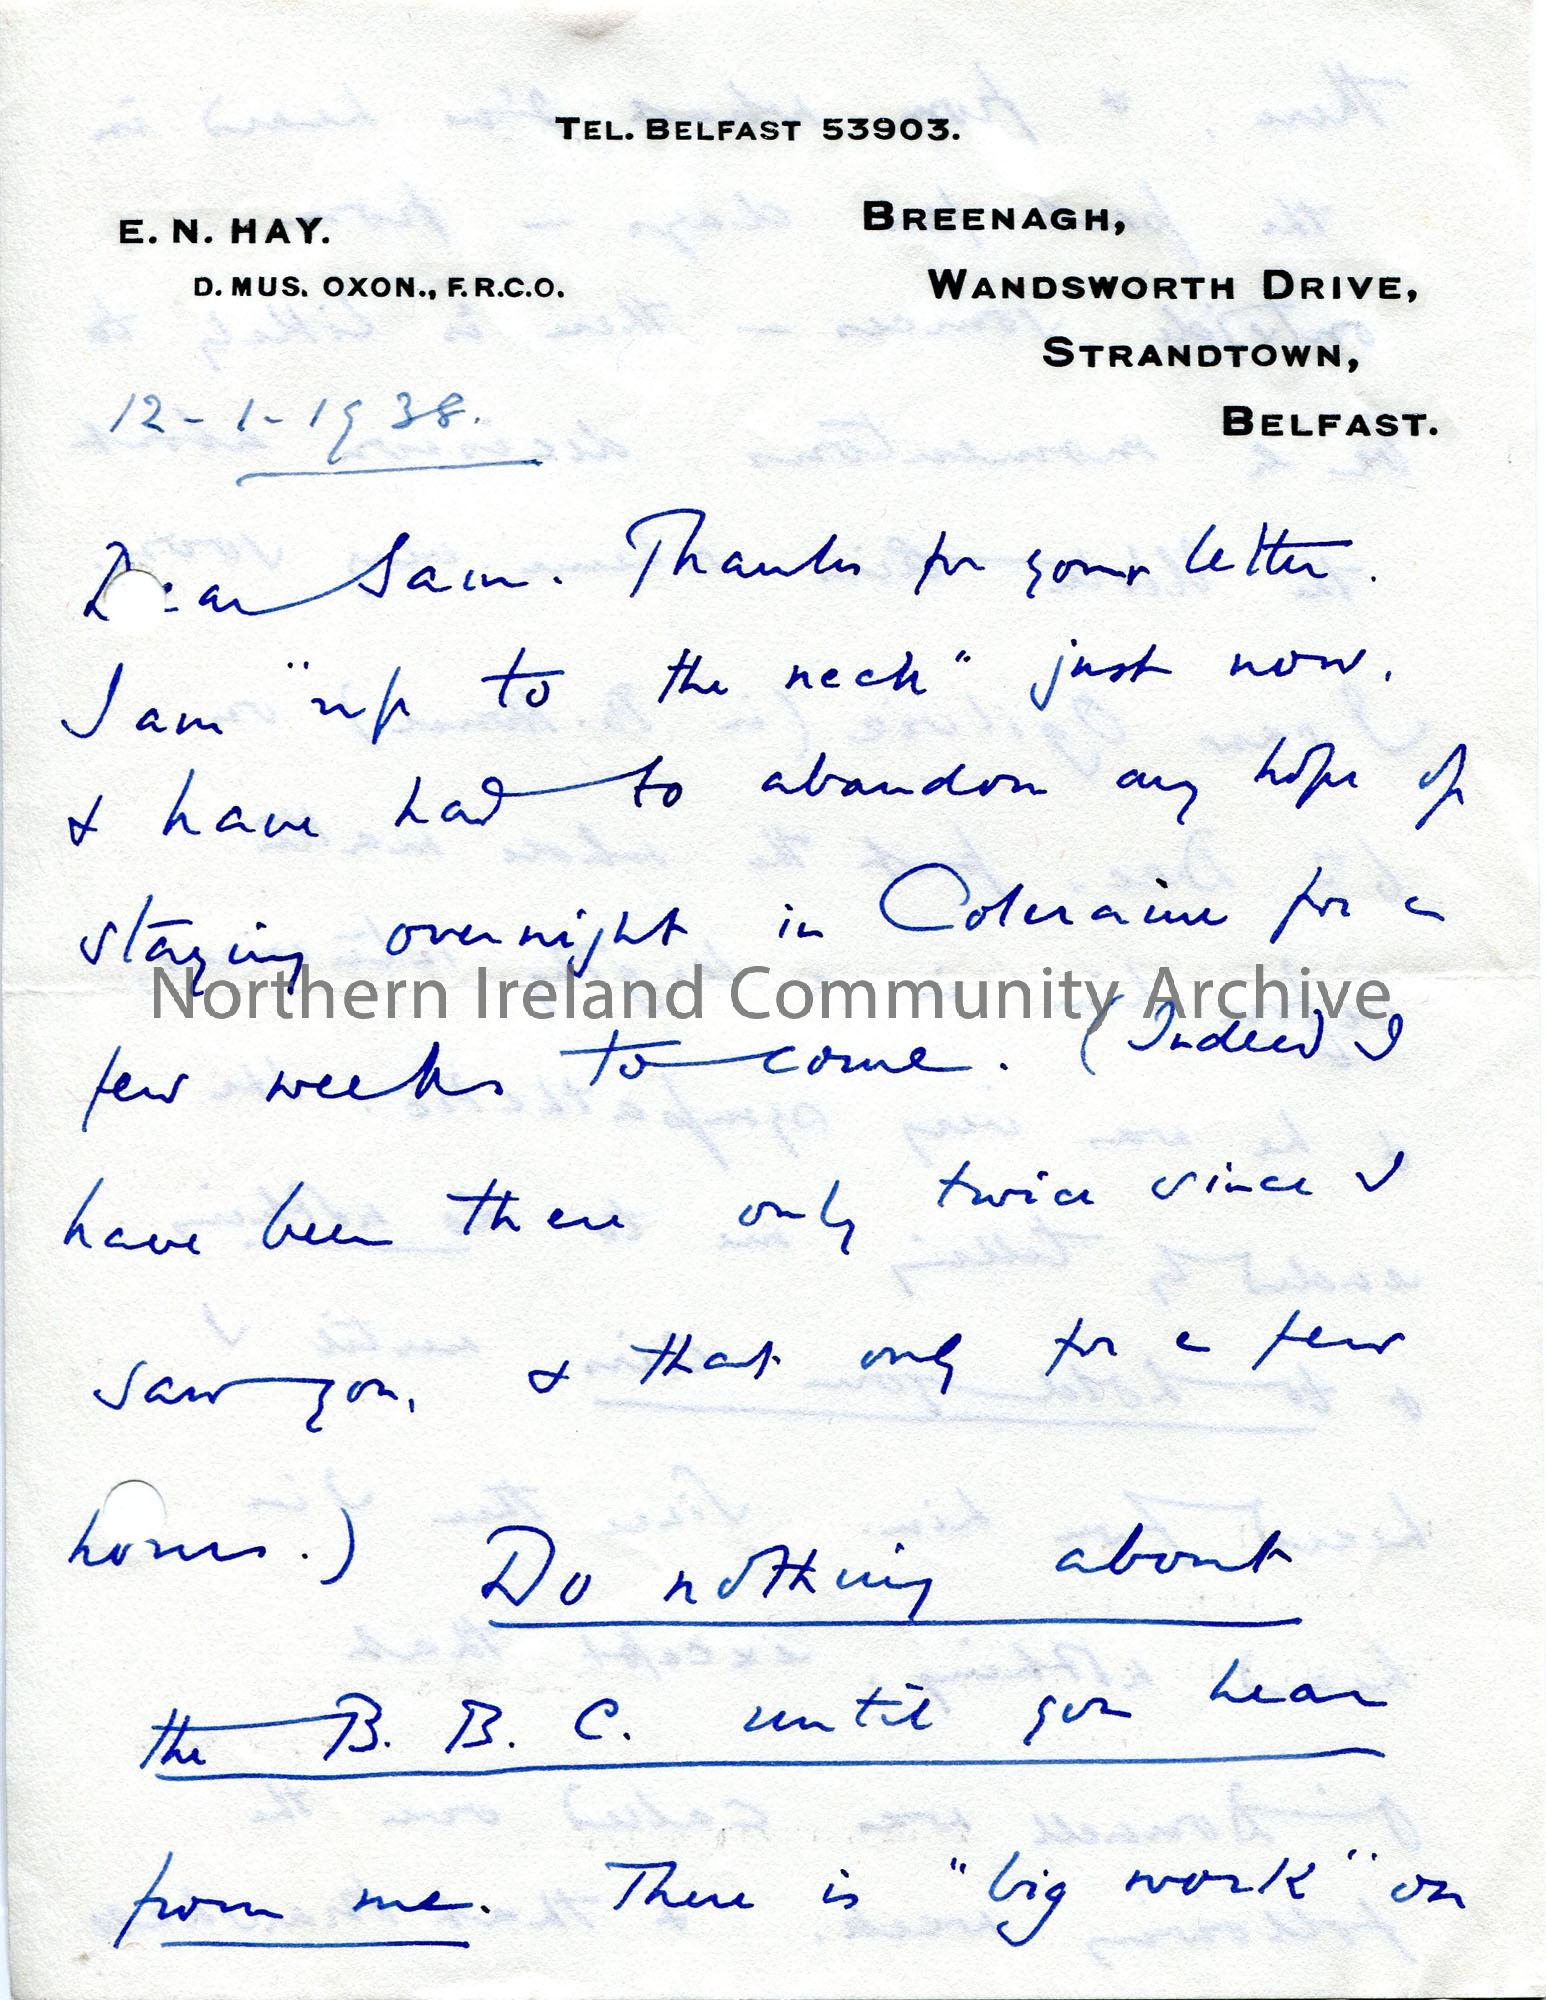 TEL. BELFAST 53903.
E. N. HAY.
D. MUS. OXON., F.R.C.O.
BREENAGH,
WANDSWORTH DRIVE,
STRANDTOWN,
BELFAST.
12-1-1938.
Dear Sam. Thanks for your letter.
I am "up to the neck" just now,
& have had to abandon any hope of
staying overnight in Coleraine for a
Northern Ireland Community Archive
few weeks to come. (Indeed I
have been there only twice since I
saw you, & that only for a few
hours.) Do nothing about
the B. B. C. until you hear
from me. There is "big work" on